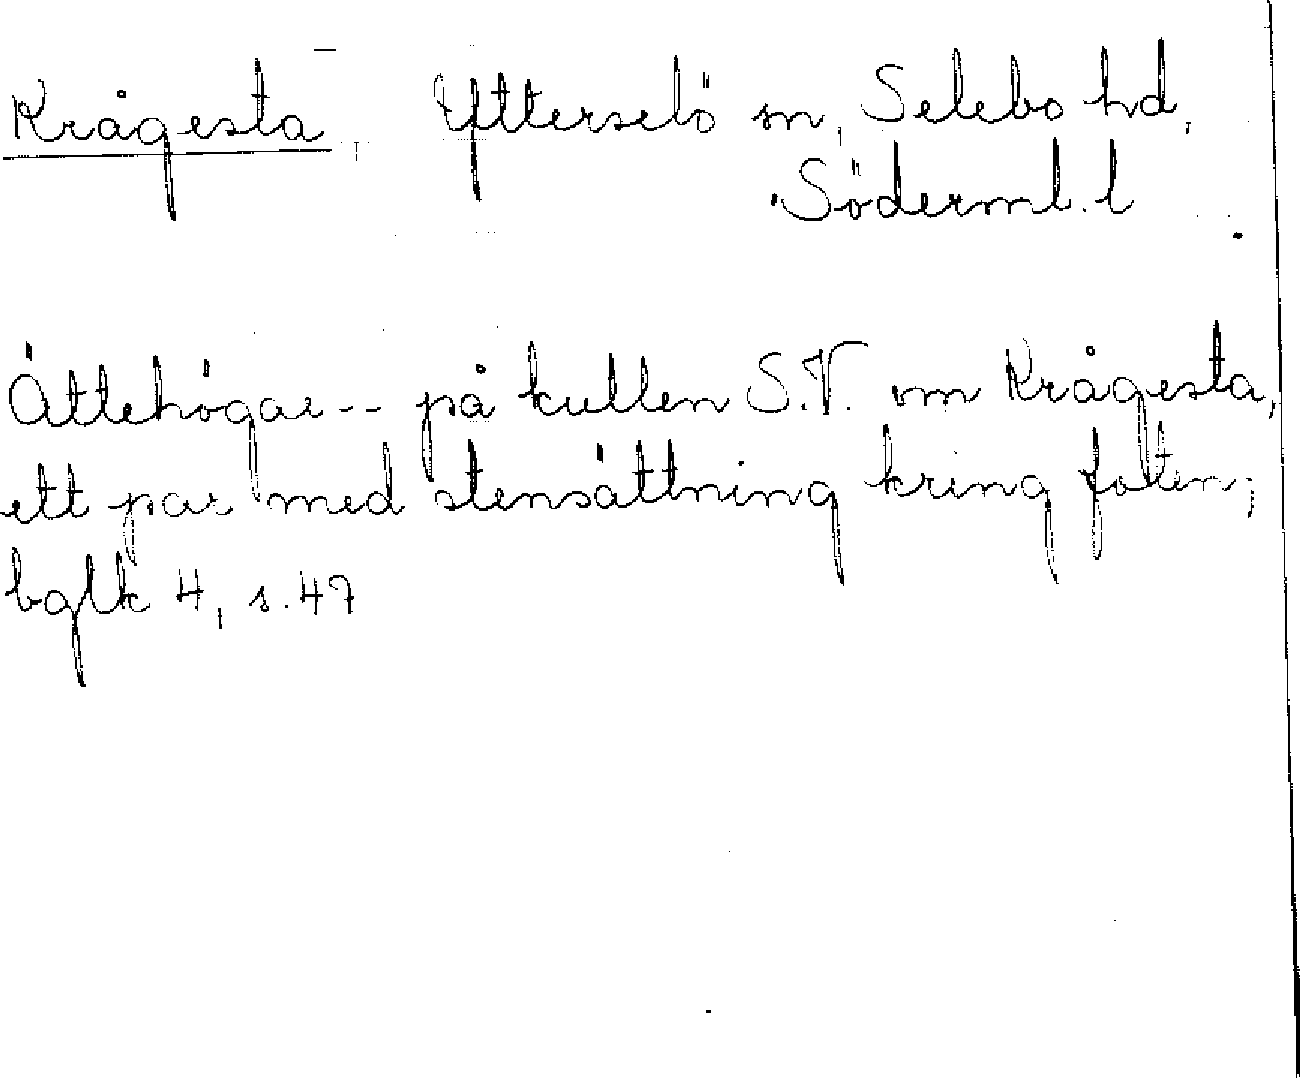 Krågesta, Ytterselö sn, Selebo hd,
Söderml. l
Ättehögar -- på kullen S.V. om Krågesta,
ett par med stensättning kring foten;
bglk 4, s. 47